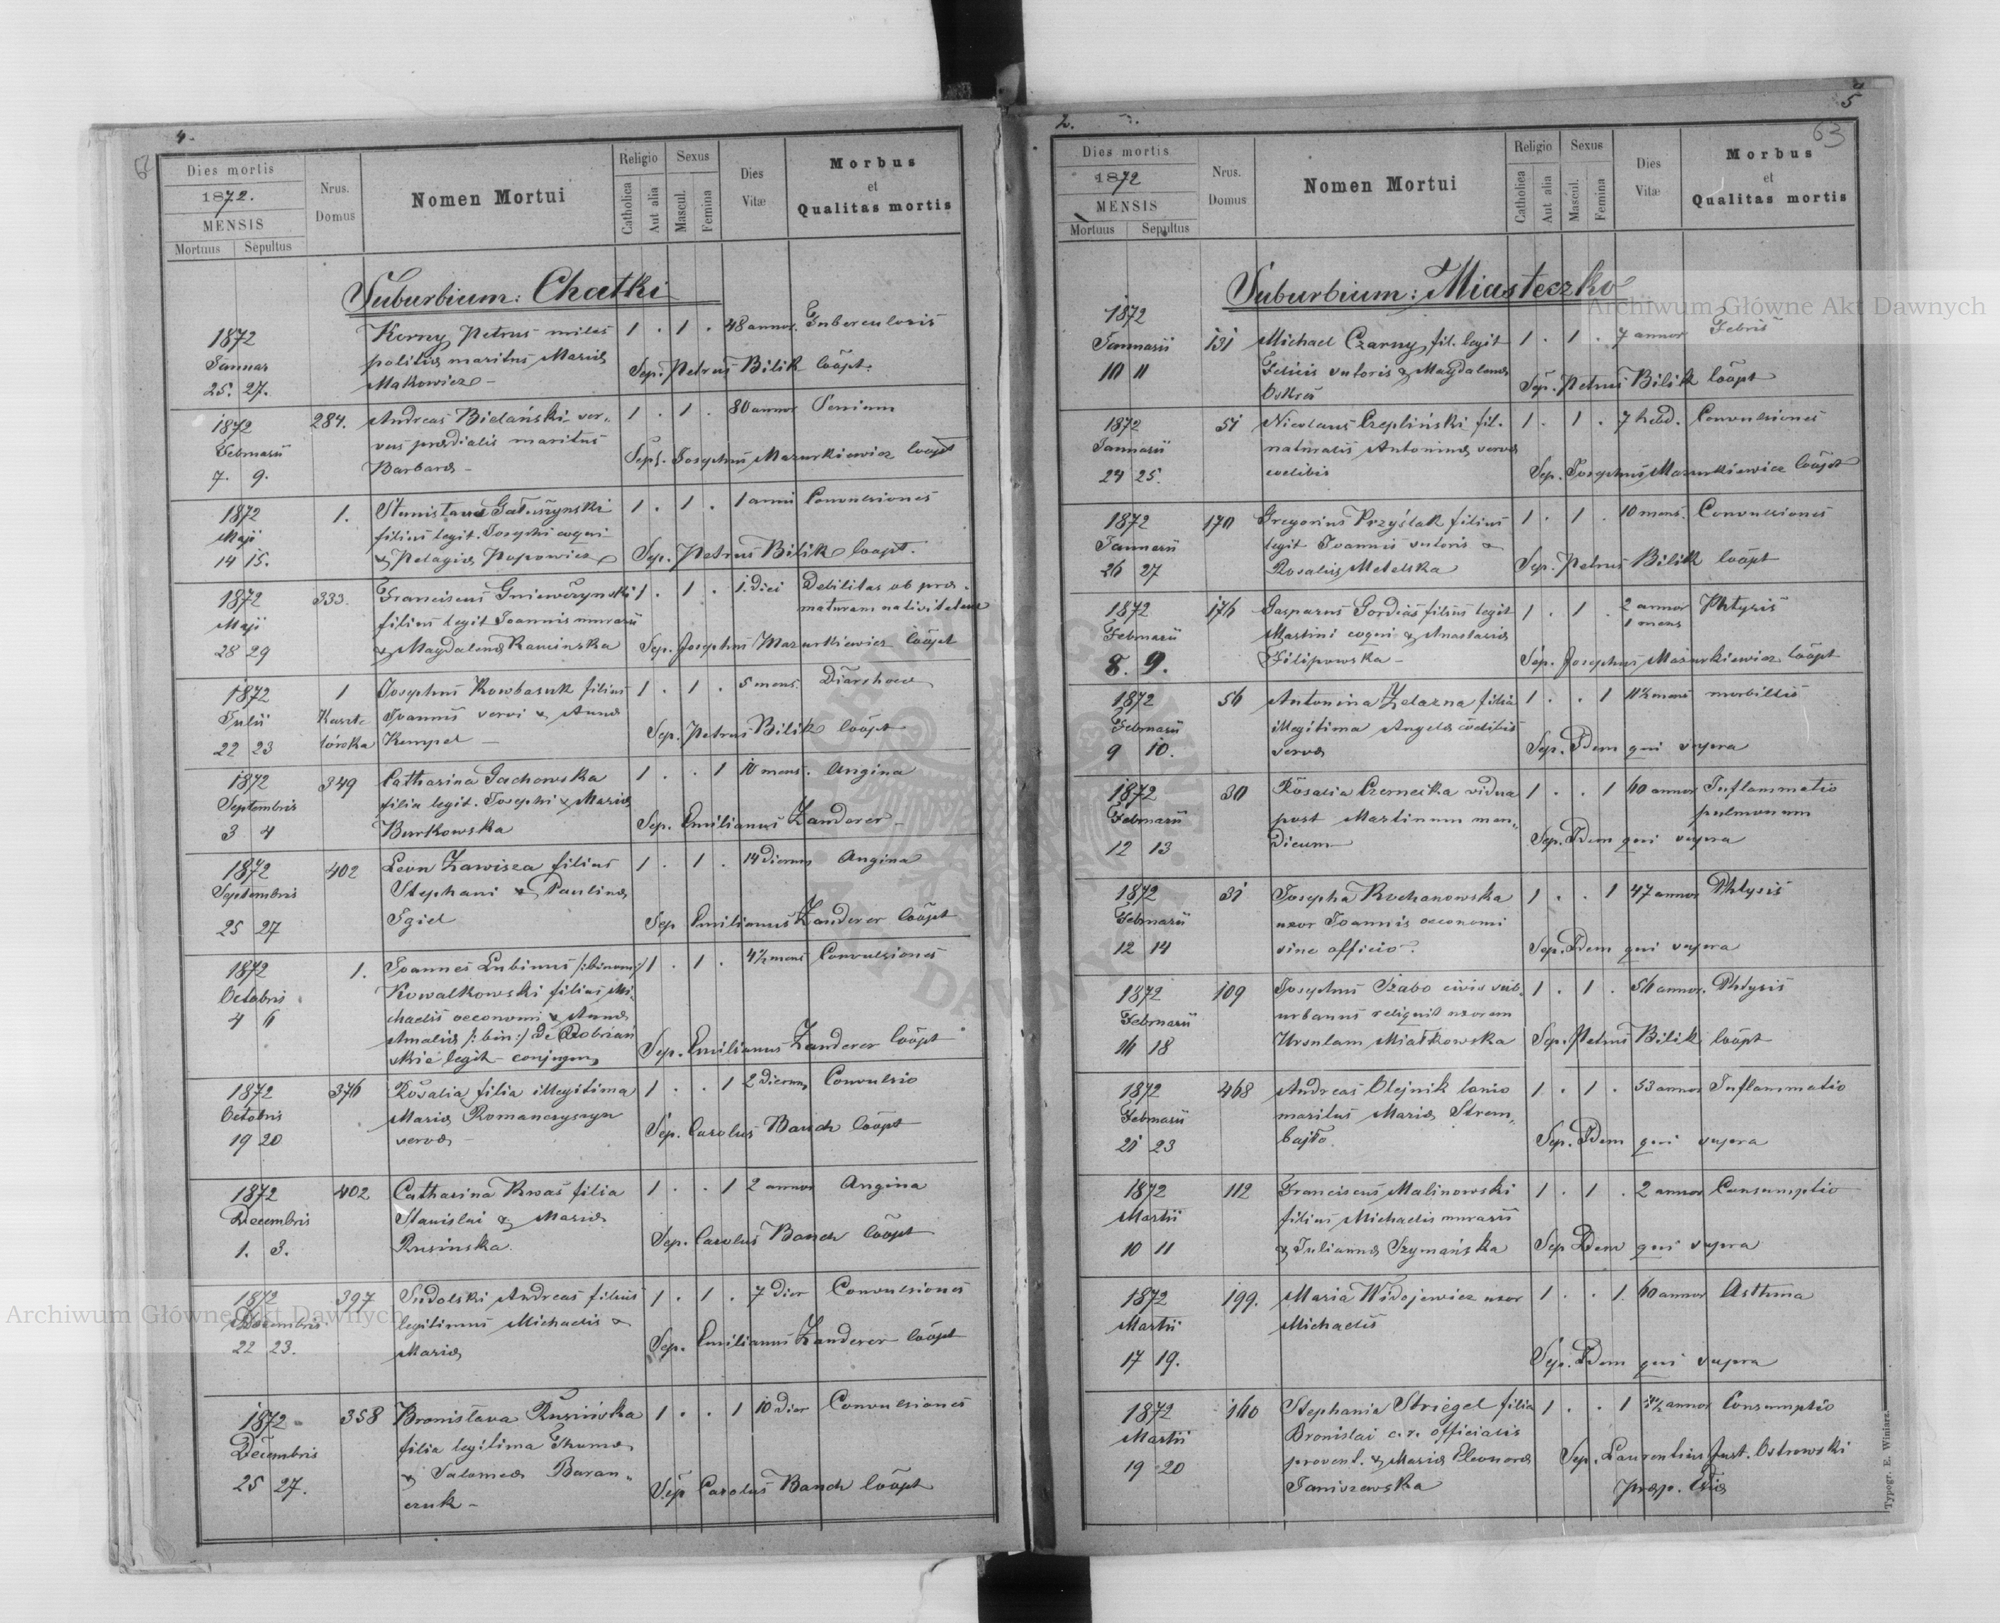 4.
Dies mortis
1872.
MENSIS
Mortuus Sepultus
Nrus. Domus
Nomen Mortui
Religio
Catholica
Aut alia
Sexus
Mascul.
Femina
Dies Vitæ
Morbus
et
Qualitas mortis
Suburbium: Chatki
1872 Kerny Petrus miles 1 . 1 . 48 annor. Tuberculosis
Januar politiæ maritus Mariæ
25. 27. Makowicz Sep. Petrus Bilik coopt.
1872 284. Andreas Bielański ser- 1 . 1 . 80 annor Senium
Februarii vus prædialis maritus
7. 9. Barbaræ Sep. Josephus Mazurkiewicz coopt
1872 1. Stanislaus Gałuszynski 1 . 1 . 1 anni Convulsiones
Maji filius legit. Josephi coqui
14 15. & Pelagiæ Popowicz Sep. Petrus Bilik coopt.
1872 333. Franciscus Gniewczynski 1 . 1 . 1. diei Debilitas ob præ-
Maji filius legit Joannis murarii maturam nativitatem
28 29 & Magdalenæ Kaminska Sep. Josephus Mazurkiewicz coopt
1872 1 Josephus Kowbasuk filius 1 . 1 . 5 mens. Diarrhoea
Julii Joannis servi & Annæ
22 23 Kempel Sep. Petrus Bilik coopt
1872 349 Catharina Gachowska 1 . . 1 10 mens. Angina
Septembris filia legit. Josephi & Mariæ
3 4 Burkowska Sep. Emilianus Zanderer
1872 402 Leon Zawisza filius 1 . 1 . 14 dierum Angina
Septembris Stephani & Paulinæ
25 27 Sgiel Sep Emilianus Zanderer coopt
1872 1. Joannes Lubinus /:binom:/ 1 . 1 . 4½ mens Convulsiones
Octobris Kowalkowski filius Mi-
4 6 chaelis oeconomi & Annæ
Amaliæ /:bin:/ de Dobriań
skie legit conjugum Sep. Emilianus Zanderer coopt
1872 376 Rosalia filia illegitima 1 . . 1 2 dierum Convulsio
Octobris Mariæ Romanczyszyn
19 20 servæ Sep. Carolus Banch coopt
1872 402 Catharina Kwas filia 1 . . 1 2 annor Angina
Decembris Stanislai & Mariæ
1. 3. Rusinska Sep. Carolus Banch coopt
1872 397 Sudolski Andreas filius 1 . 1 . 7 dier Convulsiones
Decembris legitimus Michaelis &
22 23. Mariæ Sep. Emilianus Zanderer coopt
1872 358 Bronislava Rusińska 1 . . 1 10 dier Convulsiones
Decembris filia legitima Thomæ
25 27. & Salomeæ Baran-
czuk Sep Carolus Banch coopt
2.
5
63
Dies mortis
1872
MENSIS
Mortuus Sepultus
Nrus. Domus
Nomen Mortui
Religio
Catholica
Aut alia
Sexus
Mascul.
Femina
Dies Vitæ
Morbus
et
Qualitas mortis
Suburbium: Miasteczko
1872
Januarii 131 Michael Czarny, fil. legit 1 . 1 . 7 annor Febris
10 11 Felicis sutoris & Magdalenæ
Sep. Petrus Bilik coopt
1872 51 Nicolaus Czepliński fil. 1 . 1 . 7 hebd. Convulsiones
Januarii naturalis Antoninæ servæ
24 25. coelibis Sep. Josephus Mazurkiewicz coopt
1872 170 Gregorius Przyślak filius 1 . 1 . 10 mens. Convulsiones
Januarii legit Joannis sutoris &
26 27 Rosaliæ Metelska Sep. Petrus Bilik coopt
1872 176 Gasparus Gordias filius legit 1 . 1 . 2 annor Phtysis
Februarii Martini coqui & Anastasiæ 1 mens
8. 9. Filipowska Sep. Josephus Mazurkiewicz coopt
1872 56 Antonina Zelazna filia 1 . . 1 11½ mens morbillis
Februarii illegitima Angelæ coelibis
9 10. servæ Sep. Idem qui supra
1872 30 Rosalia Czernecka vidua 1 . . 1 60 annor Inflammatio
Februarii post Martinum men- pulmonum
12 13 dicum Sep. Idem qui supra
1872 31 Josepha Kochanowska 1 . . 1 47 annor Phtysis
Februarii uxor Joannis oeconomi
12 14 sine officio. Sep. Idem qui supra
1872 109 Josephus Szabo civis sub- 1 . 1 . 56 annor. Phtysis
Februarii urbanus reliquit uxorem
16 18 Ursulam Miałkowska Sep. Petrus Bilik coopt
1872 468 Andreas Olejnik lanio 1 . 1 . 53 annor Inflammatio
Februarii maritus Mariæ Strem-
21 23 bajło. Sep. Idem qui supra
1872 112 Franciscus Malinowski 1 . 1 . 2 annor Consumptio
Martii filius Michaelis murarii
10 11 & Juliannæ Szymańska Sep Idem qui supra
1872 199. Maria Widojewicz uxor 1 . . 1. 60 annor Asthma
Martii Michaelis
17 19. Sep. Idem qui supra
1872 160 Stephania Striegel filia 1 . . 1 annor Consumptio
Martii Bronislai c. r. officialis
19 20 provent. & Mariæ Eleonoræ Sep. Laurentius Ostrowski
Janiszewska
Typogr. E. Winiarz.
Archiwum Główne Akt Dawnych
Archiwum Główne Akt Dawnych